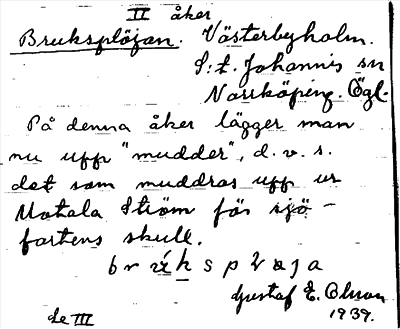 II åker
Bruksplöjan. Västerbyholm.
S:t. Johannis sn
Norrköping. Ögl.
På denna åker lägger man
nu upp "mudder", d. v. s.
det som muddras upp ur
Motala Ström för sjö-
fartens skull.
Gustaf E. Olsson
1939.
de III